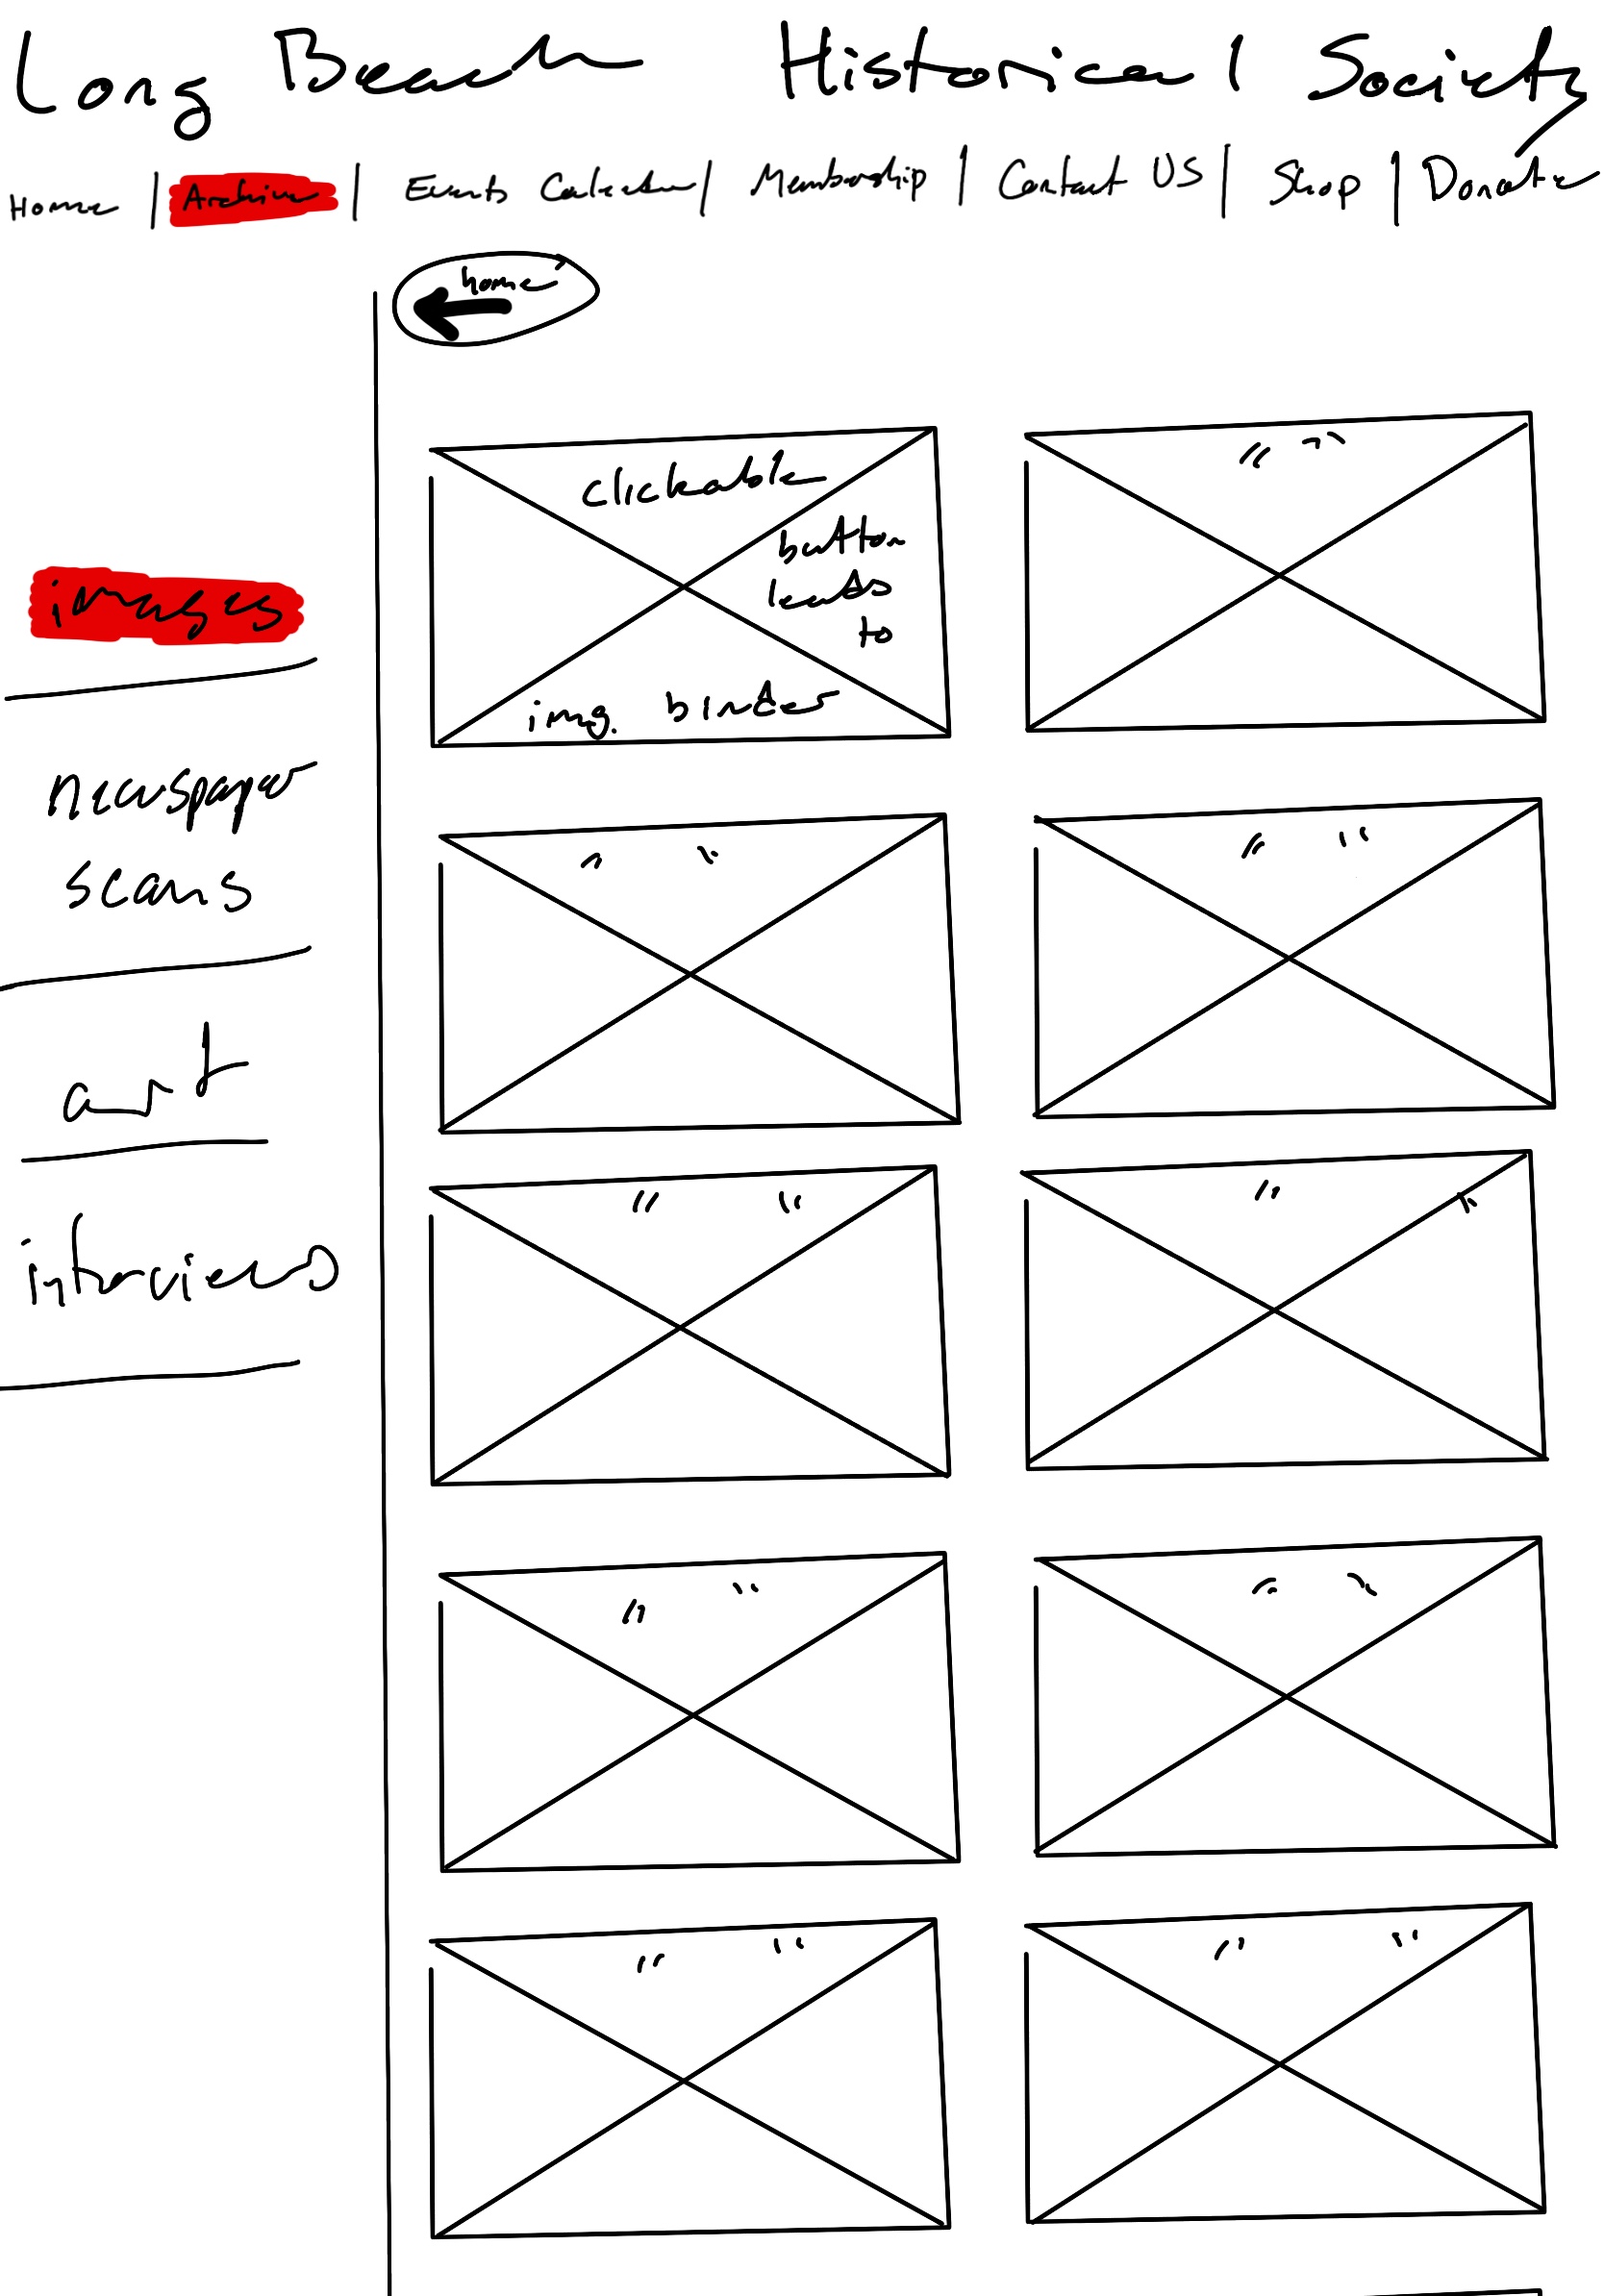 Long Beach Historical Society
Home | Archive | Events Calendar | Membership | Contact US | Shop | Donate
home
images
newspaper
scans
art
interviews
clickable
button
leads
to
img. binder
" "
" "
" "
" "
" "
" "
" "
" "
" "